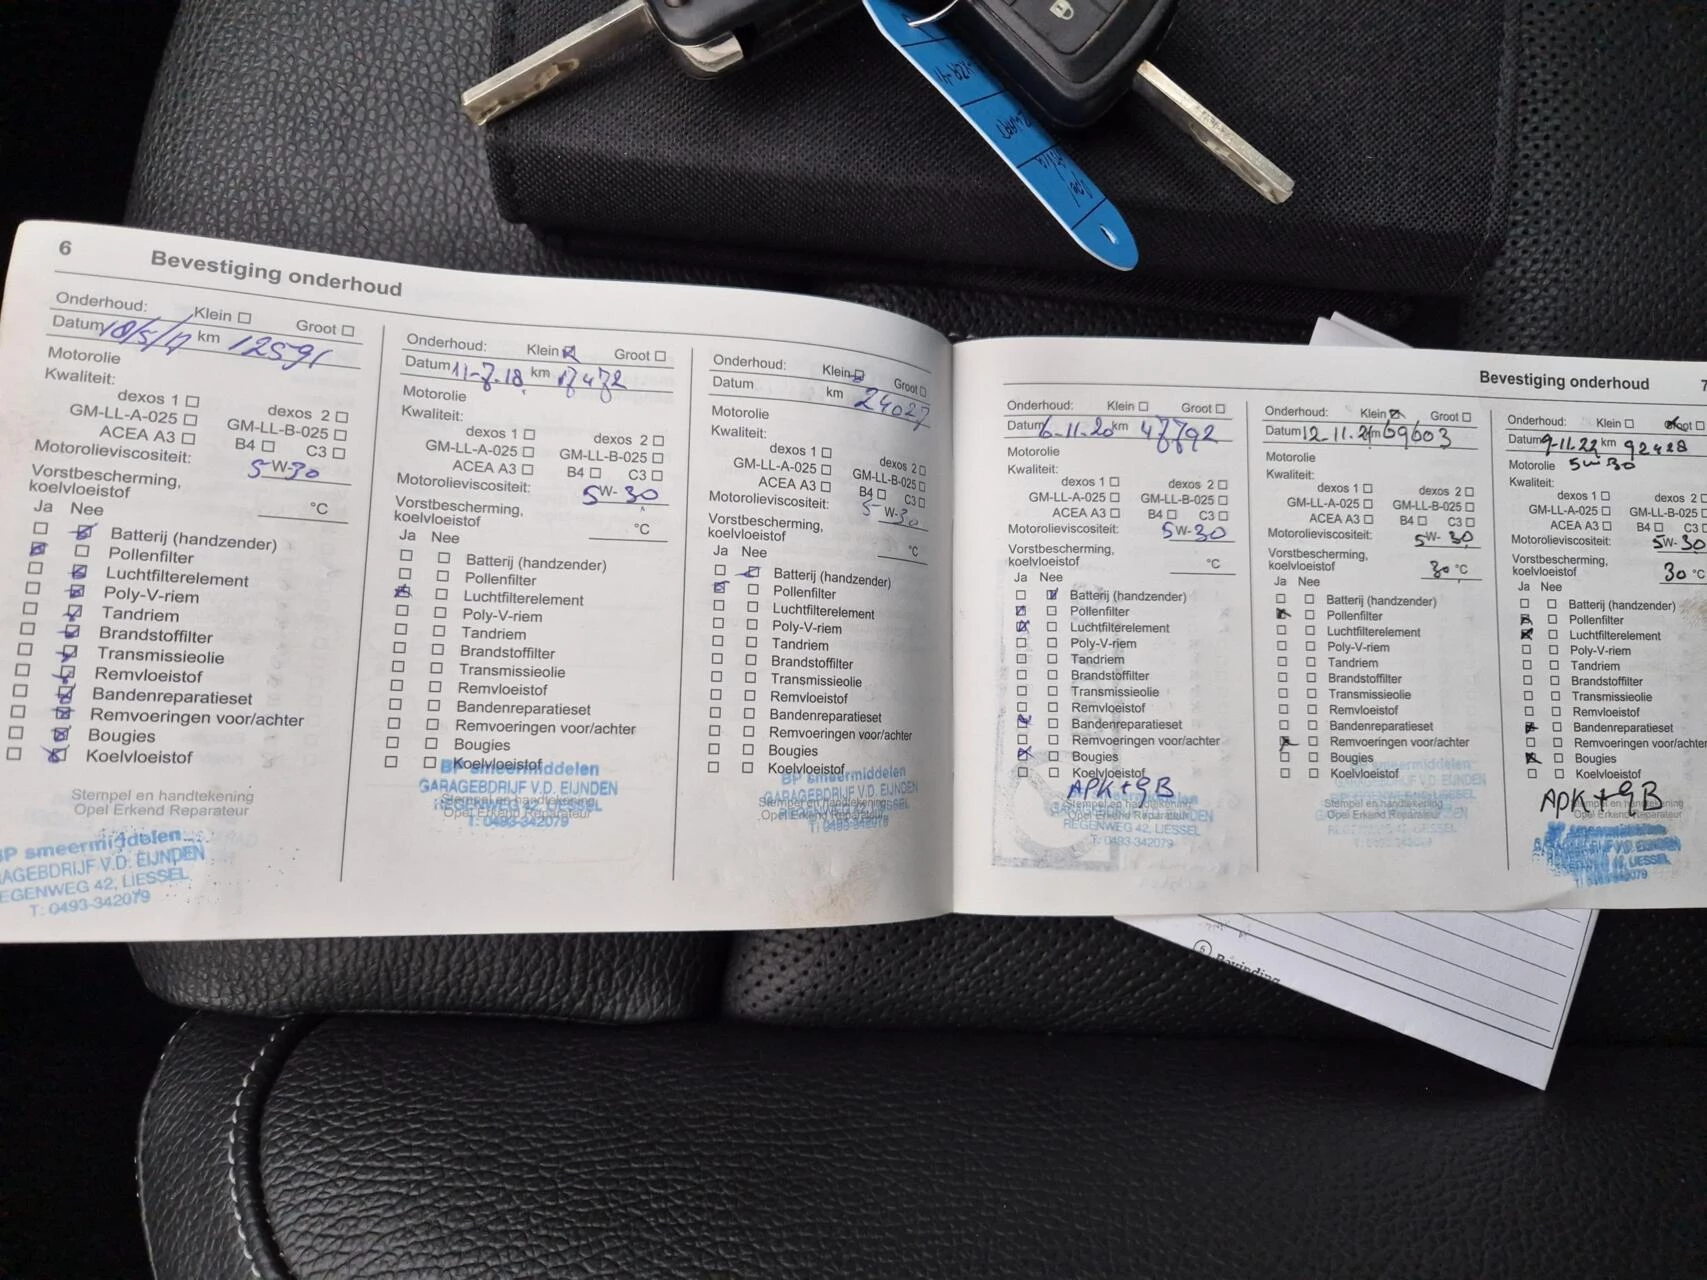 6
Bevestiging onderhoud
Onderhoud: Klein Groot
Datum 10/5/17 km 12591
Motorolie
Kwaliteit:
dexos 1 dexos 2
GM-LL-A-025 GM-LL-B-025
ACEA A3 B4 C3
Motorolieviscositeit: 5W-30
Vorstbescherming,
koelvloeistof °C
Ja Nee
Batterij (handzender)
Pollenfilter
Luchtfilterelement
Poly-V-riem
Tandriem
Brandstoffilter
Transmissieolie
Remvloeistof
Bandenreparatieset
Remvoeringen voor/achter
Bougies
Koelvloeistof
Stempel en handtekening
Opel Erkend Reparateur
BP smeermiddelen
GARAGEBDRIJF V.D. EIJNDEN
REGENWEG 42, LIESSEL
T: 0493-342079
Onderhoud: Klein Groot
Datum 11-7-18 km 17472
Motorolie
Kwaliteit:
dexos 1 dexos 2
GM-LL-A-025 GM-LL-B-025
ACEA A3 B4 C3
Motorolieviscositeit: 5W-30
Vorstbescherming,
koelvloeistof °C
Ja Nee
Batterij (handzender)
Pollenfilter
Luchtfilterelement
Poly-V-riem
Tandriem
Brandstoffilter
Transmissieolie
Remvloeistof
Bandenreparatieset
Remvoeringen voor/achter
Bougies
Koelvloeistof
BP smeermiddelen
GARAGEBDRIJF V.D. EIJNDEN
Stempel en handtekening
REGENWEG 42, LIESSEL
Opel Erkend Reparateur
T: 0493-342079
Onderhoud: Klein Groot
Datum km 24027
Motorolie
Kwaliteit:
dexos 1 dexos 2
GM-LL-A-025 GM-LL-B-025
ACEA A3 B4 C3
Motorolieviscositeit: 5W-30
Vorstbescherming,
koelvloeistof °C
Ja Nee
Batterij (handzender)
Pollenfilter
Luchtfilterelement
Poly-V-riem
Tandriem
Brandstoffilter
Transmissieolie
Remvloeistof
Bandenreparatieset
Remvoeringen voor/achter
Bougies
Koelvloeistof
BP smeermiddelen
GARAGEBDRIJF V.D. EIJNDEN
Stempel en handtekening
REGENWEG 42, LIESSEL
Opel Erkend Reparateur
T: 0493-342079
Bevestiging onderhoud
7
Onderhoud: Klein Groot
Datum 6-11-20 km 47792
Motorolie
Kwaliteit:
dexos 1 dexos 2
GM-LL-A-025 GM-LL-B-025
ACEA A3 B4 C3
Motorolieviscositeit: 5W-30
Vorstbescherming,
koelvloeistof °C
Ja Nee
Batterij (handzender)
Pollenfilter
Luchtfilterelement
Poly-V-riem
Tandriem
Brandstoffilter
Transmissieolie
Remvloeistof
Bandenreparatieset
Remvoeringen voor/achter
Bougies
Koelvloeistof
APK + GB
Stempel en handtekening
GARAGEBDRIJF V.D. EIJNDEN
Opel Erkend Reparateur
REGENWEG 42, LIESSEL
T: 0493-342079
Onderhoud: Klein Groot
Datum 12-11-21 km 69603
Motorolie
Kwaliteit:
dexos 1 dexos 2
GM-LL-A-025 GM-LL-B-025
ACEA A3 B4 C3
Motorolieviscositeit: 5W-30
Vorstbescherming,
koelvloeistof 30 °C
Ja Nee
Batterij (handzender)
Pollenfilter
Luchtfilterelement
Poly-V-riem
Tandriem
Brandstoffilter
Transmissieolie
Remvloeistof
Bandenreparatieset
Remvoeringen voor/achter
Bougies
Koelvloeistof
Stempel en handtekening
Opel Erkend Reparateur
Onderhoud: Klein Groot
Datum 9-11-22 km 92428
Motorolie 5W 30
Kwaliteit:
dexos 1 dexos 2
GM-LL-A-025 GM-LL-B-025
ACEA A3 B4 C3
Motorolieviscositeit: 5W-30
Vorstbescherming,
koelvloeistof 30 °C
Ja Nee
Batterij (handzender)
Pollenfilter
Luchtfilterelement
Poly-V-riem
Tandriem
Brandstoffilter
Transmissieolie
Remvloeistof
Bandenreparatieset
Remvoeringen voor/achter
Bougies
Koelvloeistof
APK + GB
Stempel en handtekening
Opel Erkend Reparateur
5 Bevinding